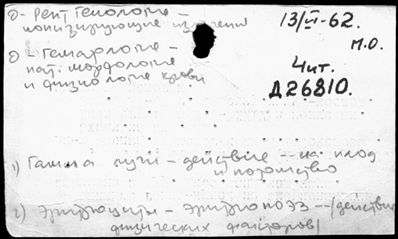 0- Рентгенология -
ионизирующие излучения
0 - Гематология -
пат. морфология
и физиология крови
13/VI-62.
М.О.
Чит.
Д26810.
1) Гамма лучи - действие - на плод
и потомство
2) Эритроциты - эритропоэз - /действие
физических факторов/